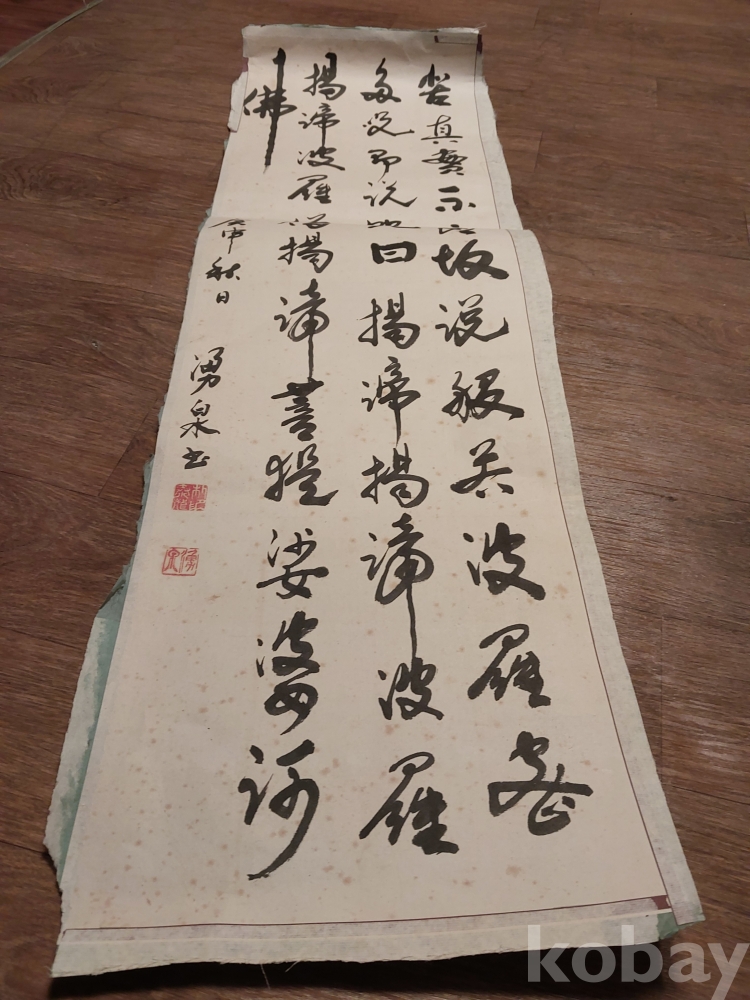 苦真實不虛故說般若波羅蜜
多呪即說呪曰揭諦揭諦波羅
揭諦波羅僧揭諦菩提娑婆訶
佛
庚申秋日 湧泉書
kobay